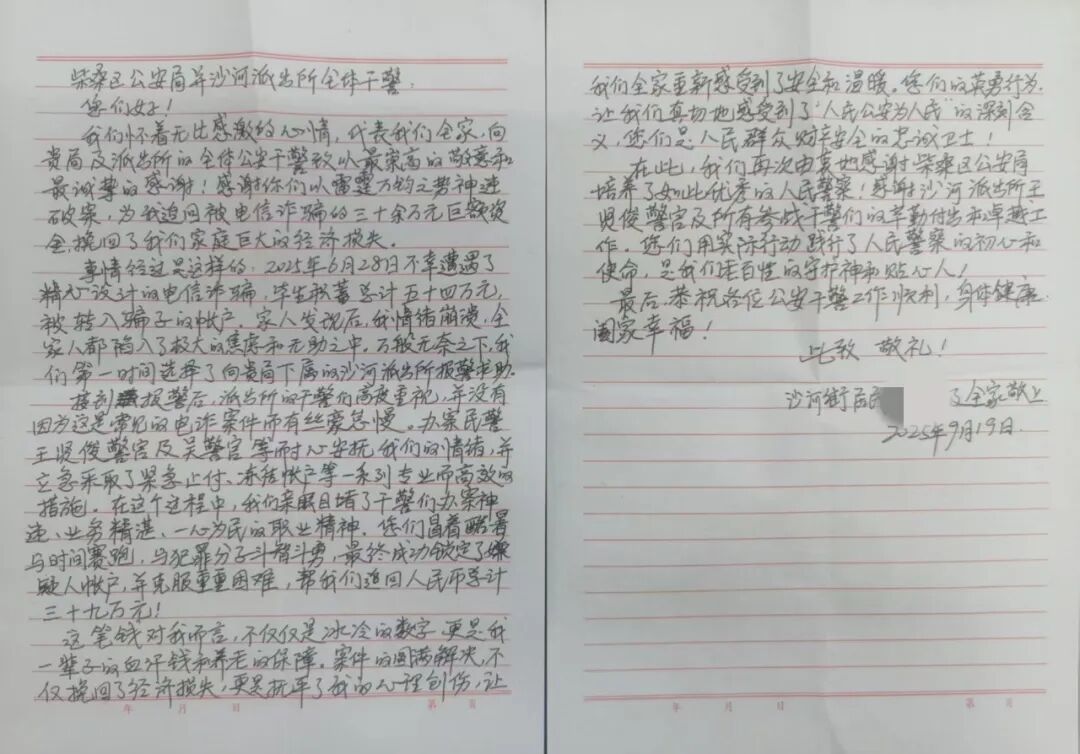 柴桑区公安局并沙河派出所全体干警：
您们好！
我们怀着无比感激的心情，代表我们全家，向
贵局及派出所的全体公安干警致以最崇高的敬意和
最诚挚的感谢！感谢你们以雷霆万钧之势神速
破案，为我追回被电信诈骗的三十余万元巨额资
金，挽回了我们家庭巨大的经济损失。
事情经过是这样的：2025年6月28日不幸遭遇了
精心设计的电信诈骗，毕生积蓄总计五十四万元，
被转入骗子的帐户。家人发现后，我情绪崩溃，全
家人都陷入了极大的焦虑和无助之中。万般无奈之下，我
们第一时间选择了向贵局下属的沙河派出所报警求助。
接到报警后，派出所的干警们高度重视，并没有
因为这是常见的电诈案件而有丝豪怠慢。办案民警
王贤俊警官及吴警官等耐心安抚我们的情绪，并
立急采取了紧急止付、冻结帐户等一系列专业而高效的
措施。在这个过程中，我们亲眼目堵了干警们办案神
速、业务精湛、一心为民的职业精神。您们冒着酷暑
与时间赛跑，与犯罪分子斗智斗勇，最终成功锁定了嫌
疑人帐户，并克服重重困难，帮我们追回人民币总计
三十九万元！
这笔钱对我而言，不仅仅是冰冷的数字，更是我
一辈子的血汗钱和养老的保障。案件的圆满解决，不
仅挽回了经济损失，更是抚平了我的心理创伤，让
年 月 日 第 页
我们全家重新感受到了安全和温暖。您们的英勇行为，
让我们真切地感受到了“人民公安为人民”的深刻含
义，您们是人民群众财产安全的忠诚卫士！
在此，我们再次由衷地感谢柴桑区公安局
培养了如此优秀的人民警察！感谢沙河派出所王
贤俊警官及所有参战干警们的辛勤付出和卓越工
作。您们用实际行动践行了人民警察的初心和
使命，是我们老百性的守护神和贴心人！
最后，恭祝各位公安干警工作顺利，身体健康，
阖家幸福！
此致 敬礼！
沙河街居民 及全家敬上
2025年9月19日.
年 月 日 第 页